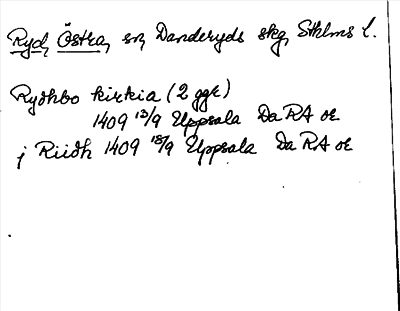 Ryd, Östra, sn, Danderyds skg, Sthlms l.
Rydhbo kirkia (2 ggr)
1409 13/9 Uppsala Da RA or
j Riidh 1409 18/9 Uppsala Da RA or